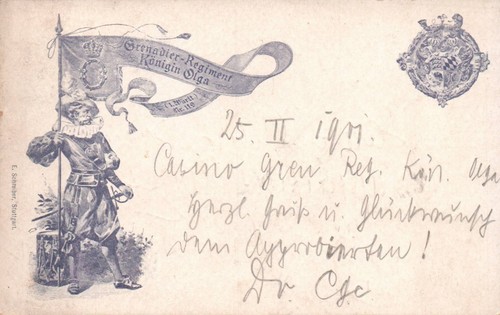 Grenadier-Regiment
Königin Olga
(1. Württ.)
Nr. 119
25. II 1901.
Casino Gren Reg. Kön. Olga
Herzl. Gruß u. Glückwunsch
dem Approbierten!
Dr.
E. Schreiber, Stuttgart.